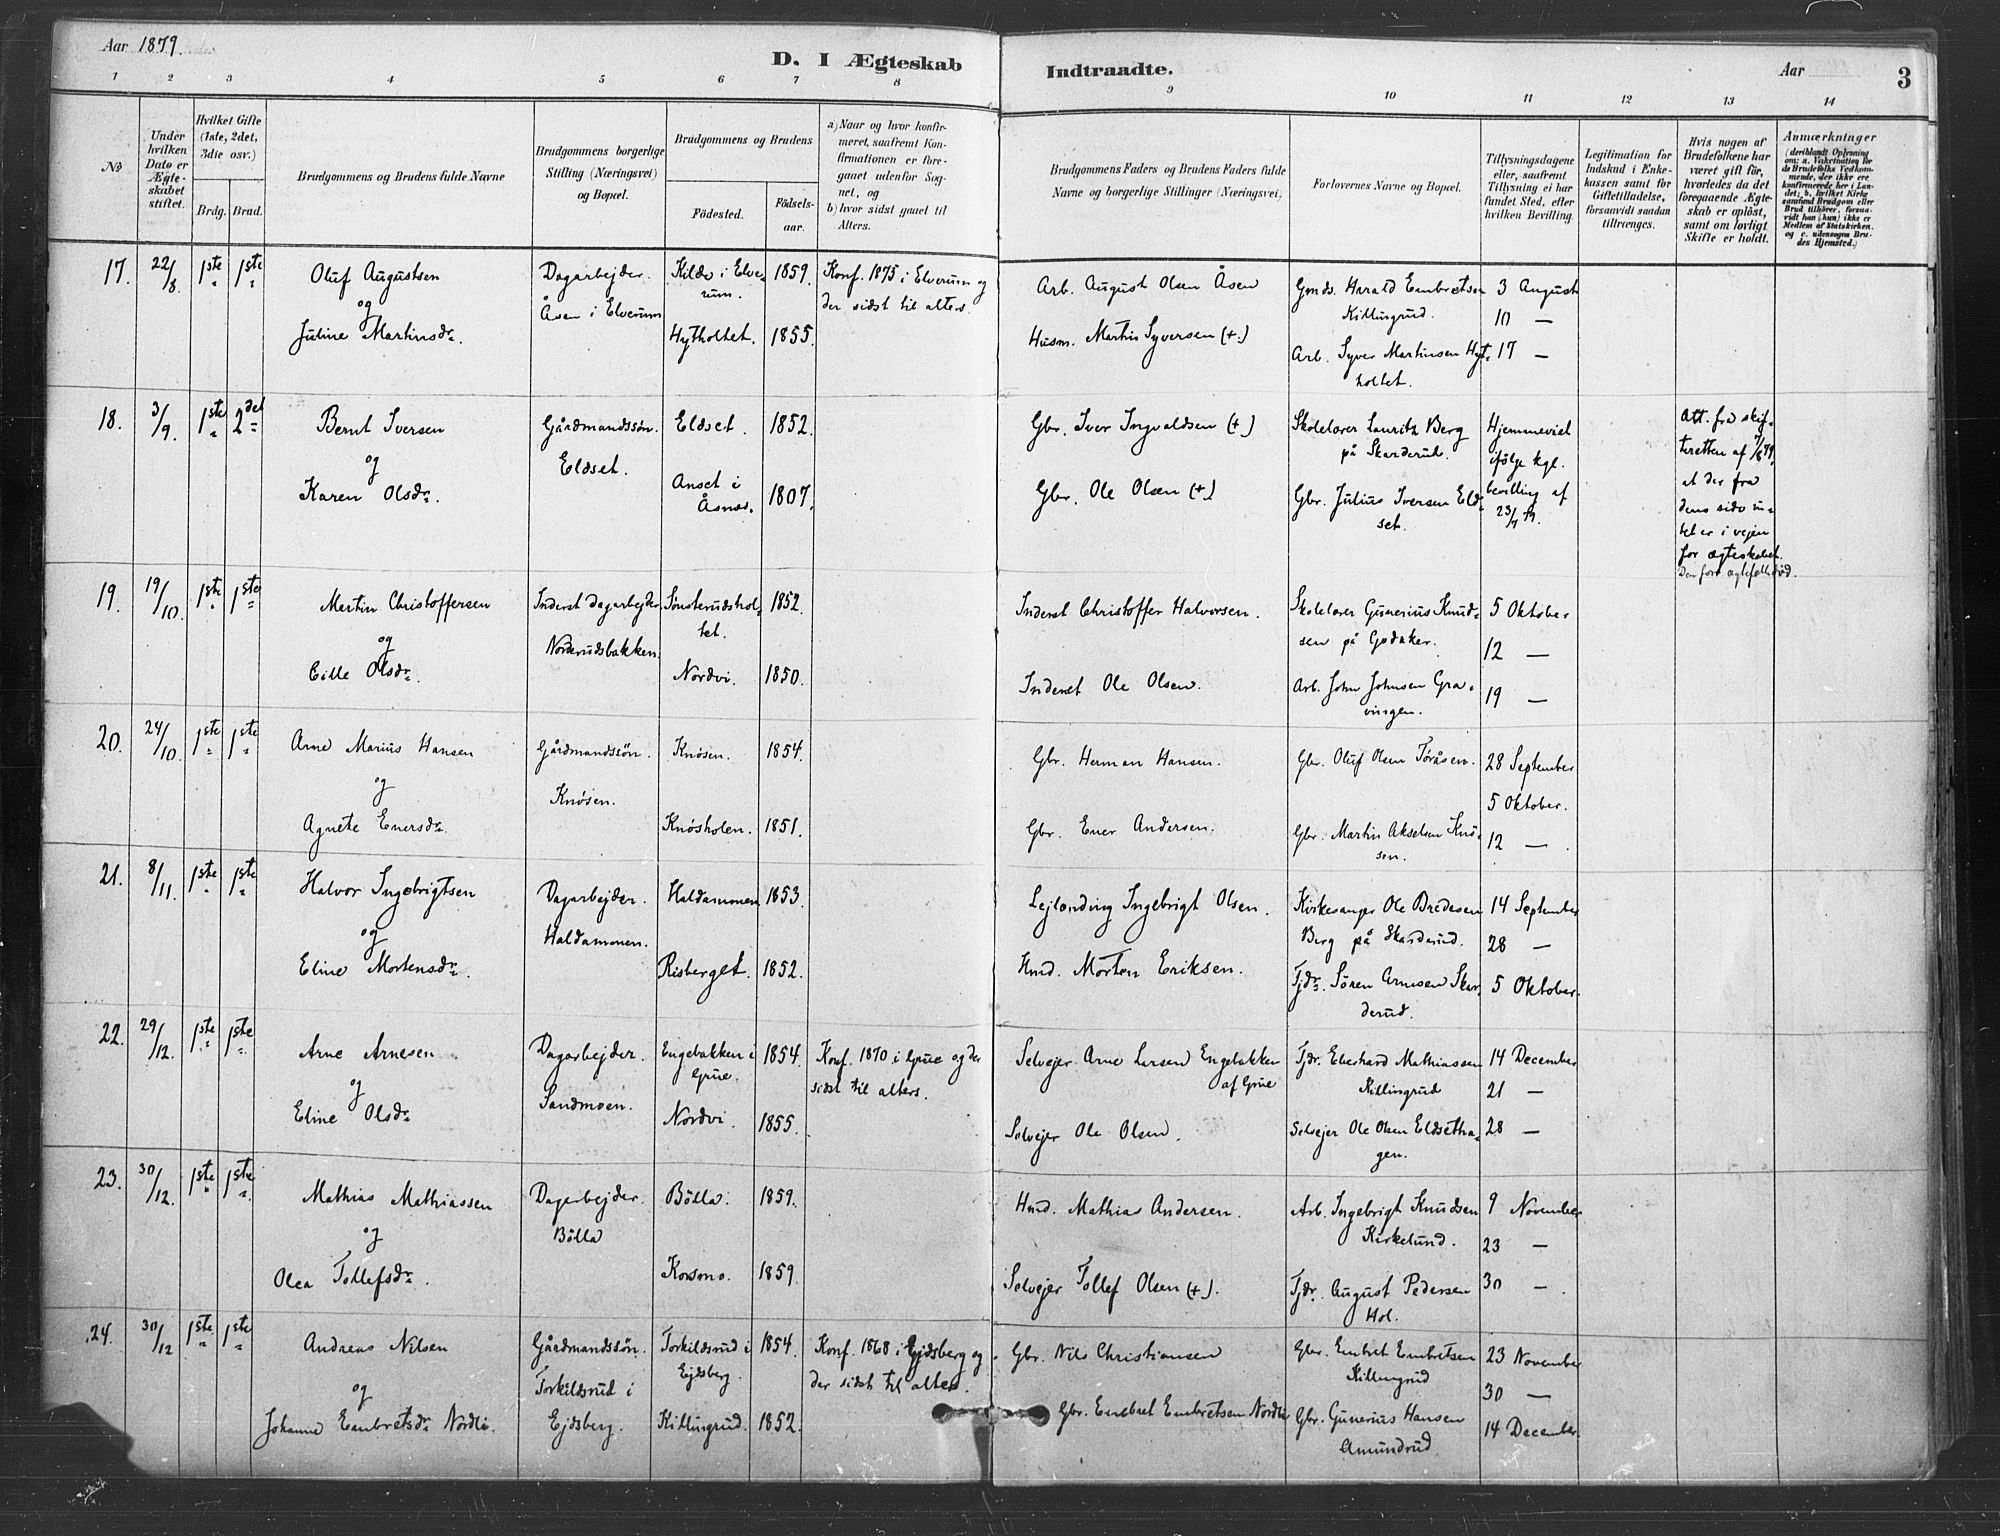 Aar 1879.
D. I Ægteskab Indtraadte.
Aar 3
1 2 3 4 5 6 7 8 9 10 11 12 13 14
No
Under hvilken Dato er Ægteskabet stiftet.
Hvilket Gifte (1ste, 2det, 3die osv.)
Brdg. Brud.
Brudgommens og Brudens fulde Navne
Brudgommens borgerlige Stilling (Næringsvei) og Bopæl.
Brudgommens og Brudens
Födested. Födselsaar.
a) Naar og hvor konfirmeret, saafremt Konfirmationen er foregaaet udenfor Sognet, og
b) hvor sidst gaaet til Alters.
Brudgommens Faders og Brudens Faders fulde Navne og borgerlige Stillinger (Næringsvei)
Forlovernes Navne og Bopæl.
Tillysningsdagene eller, saafremt Tillysning ei har fundet Sted, efter hvilken Bevilling.
Legitimation for Indskud i Enkekassen samt for Giftetilladelse, forsaavidt saadan tiltrænges.
Hvis nogen af Brudefolkene har været gift för, hvorledes da det foregaaende Ægteskab er oplöst, samt om lovligt Skifte er holdt.
Anmærkninger
(deriblandt Oplysning om: a. Vakcination for de Brudefolks Vedkommende, der ikke ere konfirmerede her i Landet; b. hvilket Kirkesamfund Brudgom eller Brud tilhörer, forsaavidt han (hun) ikke er Medlem af Statskirken, og c. udensogns Brudes Hjemsted.)
17. 22/8. 1ste 1ste
Oluf Augustsen
og
Juline Martinsdr.
Dagarbejder.
Åsen i Elverum
Kilde i Elverum. 1859.
Hytholtet. 1855.
Konf. 1875 i Elverum og
der sidst til alters.
Arb. August Olsen Åsen
Husm. Martin Syversen (+)
Gmds. Harald Embretsen
Killingrud.
Arb. Syver Martinsen Hytholtet.
3 August
10 —
17 —
18. 3/9. 1ste 2det
Bernt Iversen
og
Karen Olsdr.
Gårdmandssøn.
Eldset.
Eldset. 1852.
Anset i
Åsnes. 1807.
Gbr. Iver Ingvaldsen (+)
Gbr. Ole Olsen (+)
Skolelærer Lauritz Berg
på Skarderud.
Gbr. Julius Iversen Eldset.
Hjemmeviet
ifølge kgl.
bevilling af
23/7 79.
Att. fra skifteretten af
at der fra
dens side intet er i vejen
for ægteskabet.
19. 19/10. 1ste 1ste
Martin Christoffersen
og
Cille Olsdr.
Inderst Dagarbejder
Norderudsbakken.
Sønsterudsholtet. 1852.
Nordvi. 1850.
Inderst Christoffer Halvorsen.
Inderst Ole Olsen.
Skolelærer Gunerius Knudsen på Godaker.
Arb. John Johnsen Gravingen.
5 Oktober
12 —
19 —
20. 24/10. 1ste 1ste
Arne Marius Hansen
og
Agnete Enersdr.
Gårdmandssøn.
Knøsen.
Knøsen. 1854.
Knøsholen. 1851.
Gbr. Herman Hansen.
Gbr. Ener Andersen.
Gbr. Oluf Olsen Toråsen.
Gbr. Martin Akselsen Knøsen.
28 September
5 Oktober.
12 —
21. 8/11. 1ste 1ste
Halvor Ingebrigtsen
og
Eline Mortensdr.
Dagarbejder.
Haldammen.
Haldammen 1853.
Risberget. 1852.
Lejlending Ingebrigt Olsen.
Hmd. Morten Eriksen.
Kirkesanger Ole Bredesen
Berg på Skarderud.
Tjdr. Søren Arnesen Skarderud.
14 September
28 —
5 Oktober.
22. 29/12. 1ste 1ste
Arne Arnesen
og
Eline Olsdr.
Dagarbejder.
Sandmoen.
Engebakken i
Grue. 1854.
Nordvi. 1855.
Konf. 1870 i Grue og der
sidst til alters.
Selvejer Arne Larsen Engebakken
af Grue
Selvejer Ole Olsen.
Tjdr. Eberhard Mathiassen
Killingrud
Selvejer Ole Olsen Eldsethagen.
14 December
21 —
28 —
23. 30/12. 1ste 1ste
Mathias Mathiassen
og
Olea Tollefsdr.
Dagarbejder.
Bölla
Bölla. 1859.
Korsmo. 1859.
Hmd. Mathias Andersen.
Selvejer Tollef Olsen (+).
Arb. Ingebrigt Knudsen
Kirkelund.
Tjdr. August Pedersen
Hol.
9 November
23 —
30 —
24. 30/12 1ste 1ste
Andreas Nilsen
og
Johanne Embretsdr. Nordli.
Gårdmandssön.
Torkildsrud i
Ejdsberg.
Torkildsrud i
Ejdsberg. 1854.
Killingrud. 1852.
Konf. 1868 i Ejdsberg og
der sidst til alters.
Gbr. Nils Christiansen
Gbr. Embret Embretsen Nordli
Gbr. Embret Embretsen
Killingrud
Gbr. Gunerius Hansen
Amundrud
23 November
30 —
14 December.